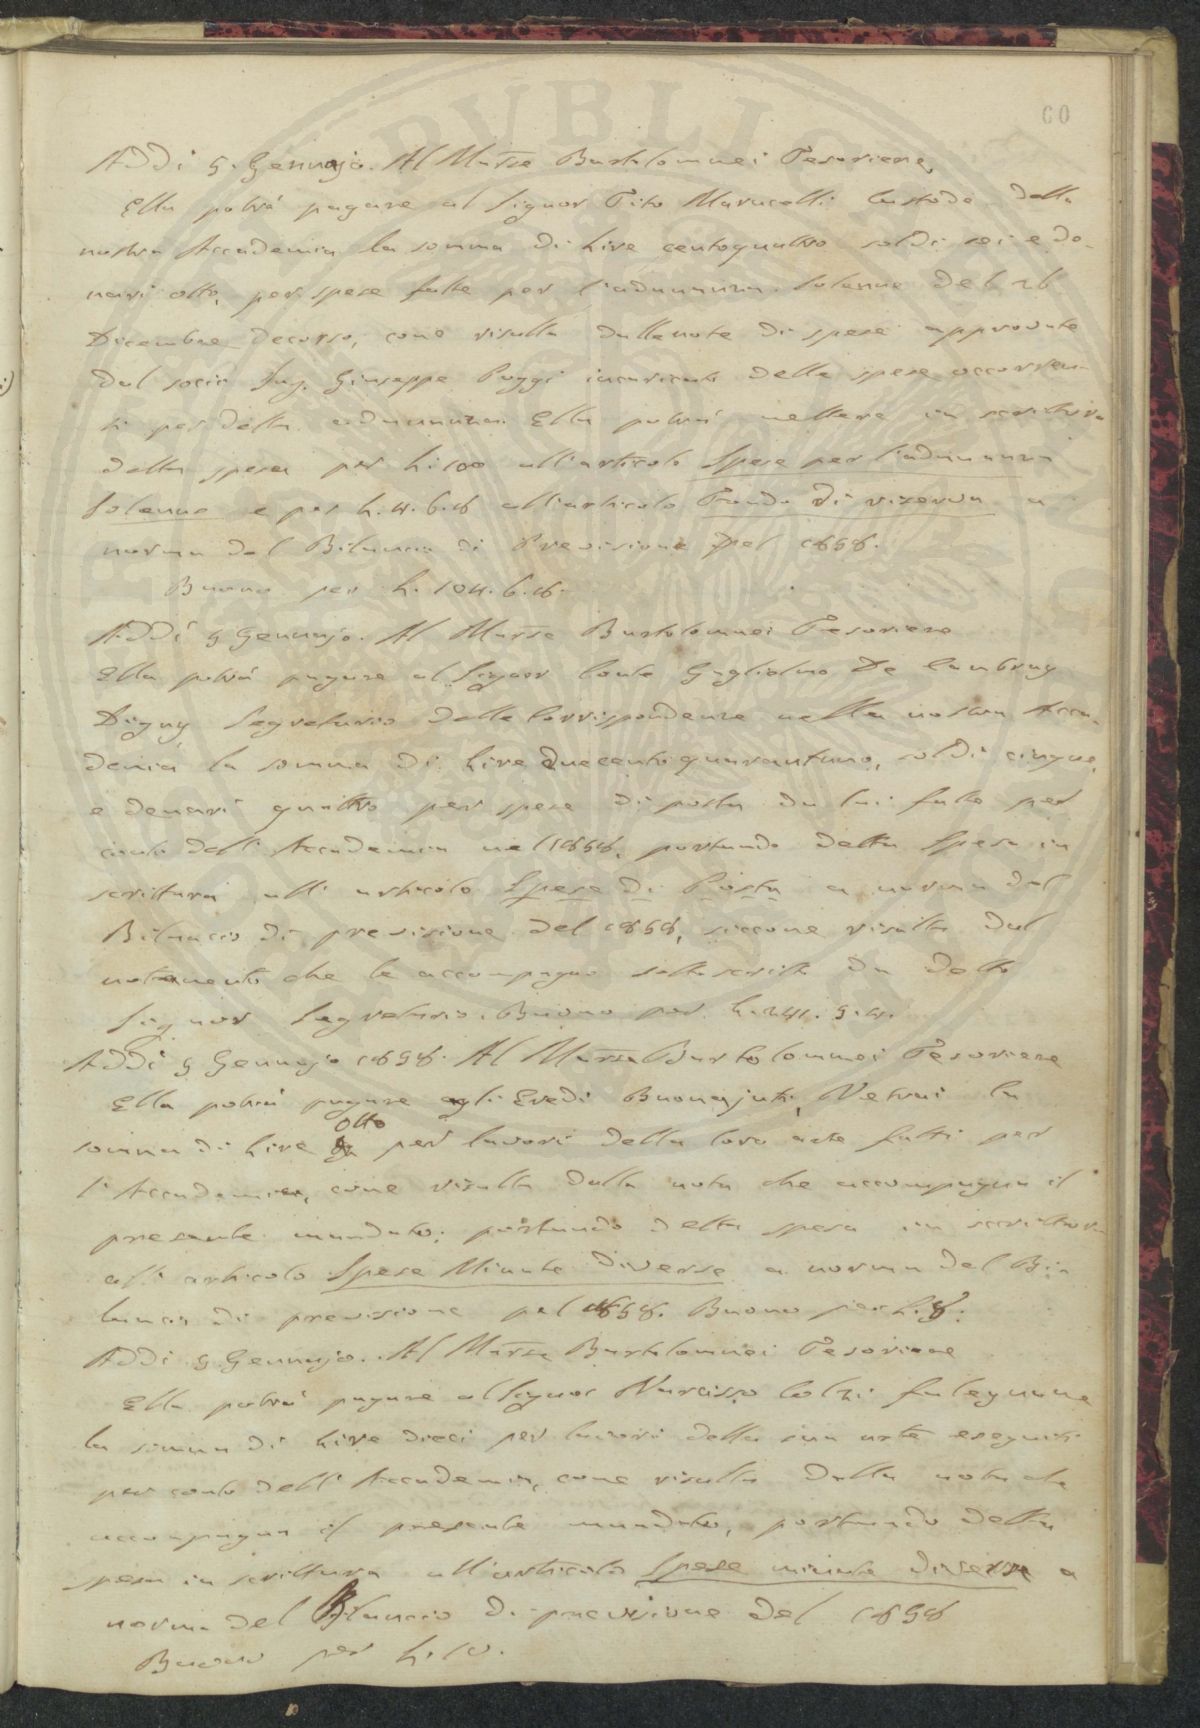 60
Addi 5. Gennajo. Al March.se Bartolommei Tesoriere
Ella potrà pagare al Signor Tito Marucelli Custode della
nostra Accademia la somma di Lire centoquattro soldi sei e de-
nari otto, per spese fatte per l'adunanza solenne del 26
Dicembre decorso, come risulta dalle note di spese approvate
dal socio Ing. Giuseppe Poggi incaricato delle spese occorren-
ti per detta adunanza. Ella potrà mettere in scrittura
detta spesa per L. 100 all'articolo Spese per l'adunanza
solenne e per L. 4. 6. 8 all'articolo Fondo di riserva a
norma del Bilancio di Previsione pel 1858.
Buono per L. 104. 6. 8.
Addi 5 Gennajo. Al March.se Bartolommei Tesoriere
Ella potrà pagare al Signor Conte Guglielmo De Cambray
Digny Segretario delle Corrispondenze nella nostra Acca-
demia la somma di Lire Duecentoquarantuno, soldi cinque,
e denari quattro per spese di posta da lui fatte per
conto dell'Accademia nel 1858, portando detta spesa in
scrittura all'articolo Spese di Posta a norma del
Bilancio di previsione del 1858, siccome risulta dal
notamento che le accompagno sottoscritto da detto
Signor Segretario. Buono per L. 241. 5. 4.
Addi 5 Gennajo 1858. Al March.se Bartolommei Tesoriere
Ella potrà pagare agli Eredi Buonajuti, Vetrai la
somma di Lire otto per lavori della loro arte fatti per
l'Accademia, come risulta dalla nota che accompagna il
presente mandato; portando detta spesa in scrittura
all'articolo Spese Minute diverse a norma del Bi-
lancio di previsione pel 1858. Buono per L. 8.
Addi 5. Gennajo. Al March.se Bartolommei Tesoriere
Ella potrà pagare al Signor Narcisso Colzi falegname
la somma di Lire dieci per lavori della sua arte eseguiti
per conto dell'Accademia, come risulta dalla nota che
accompagna il presente mandato, portando detta
spesa in scrittura all'articolo Spese minute diverse a
norma del Bilancio di previsione del 1858
Buono per L. 10.